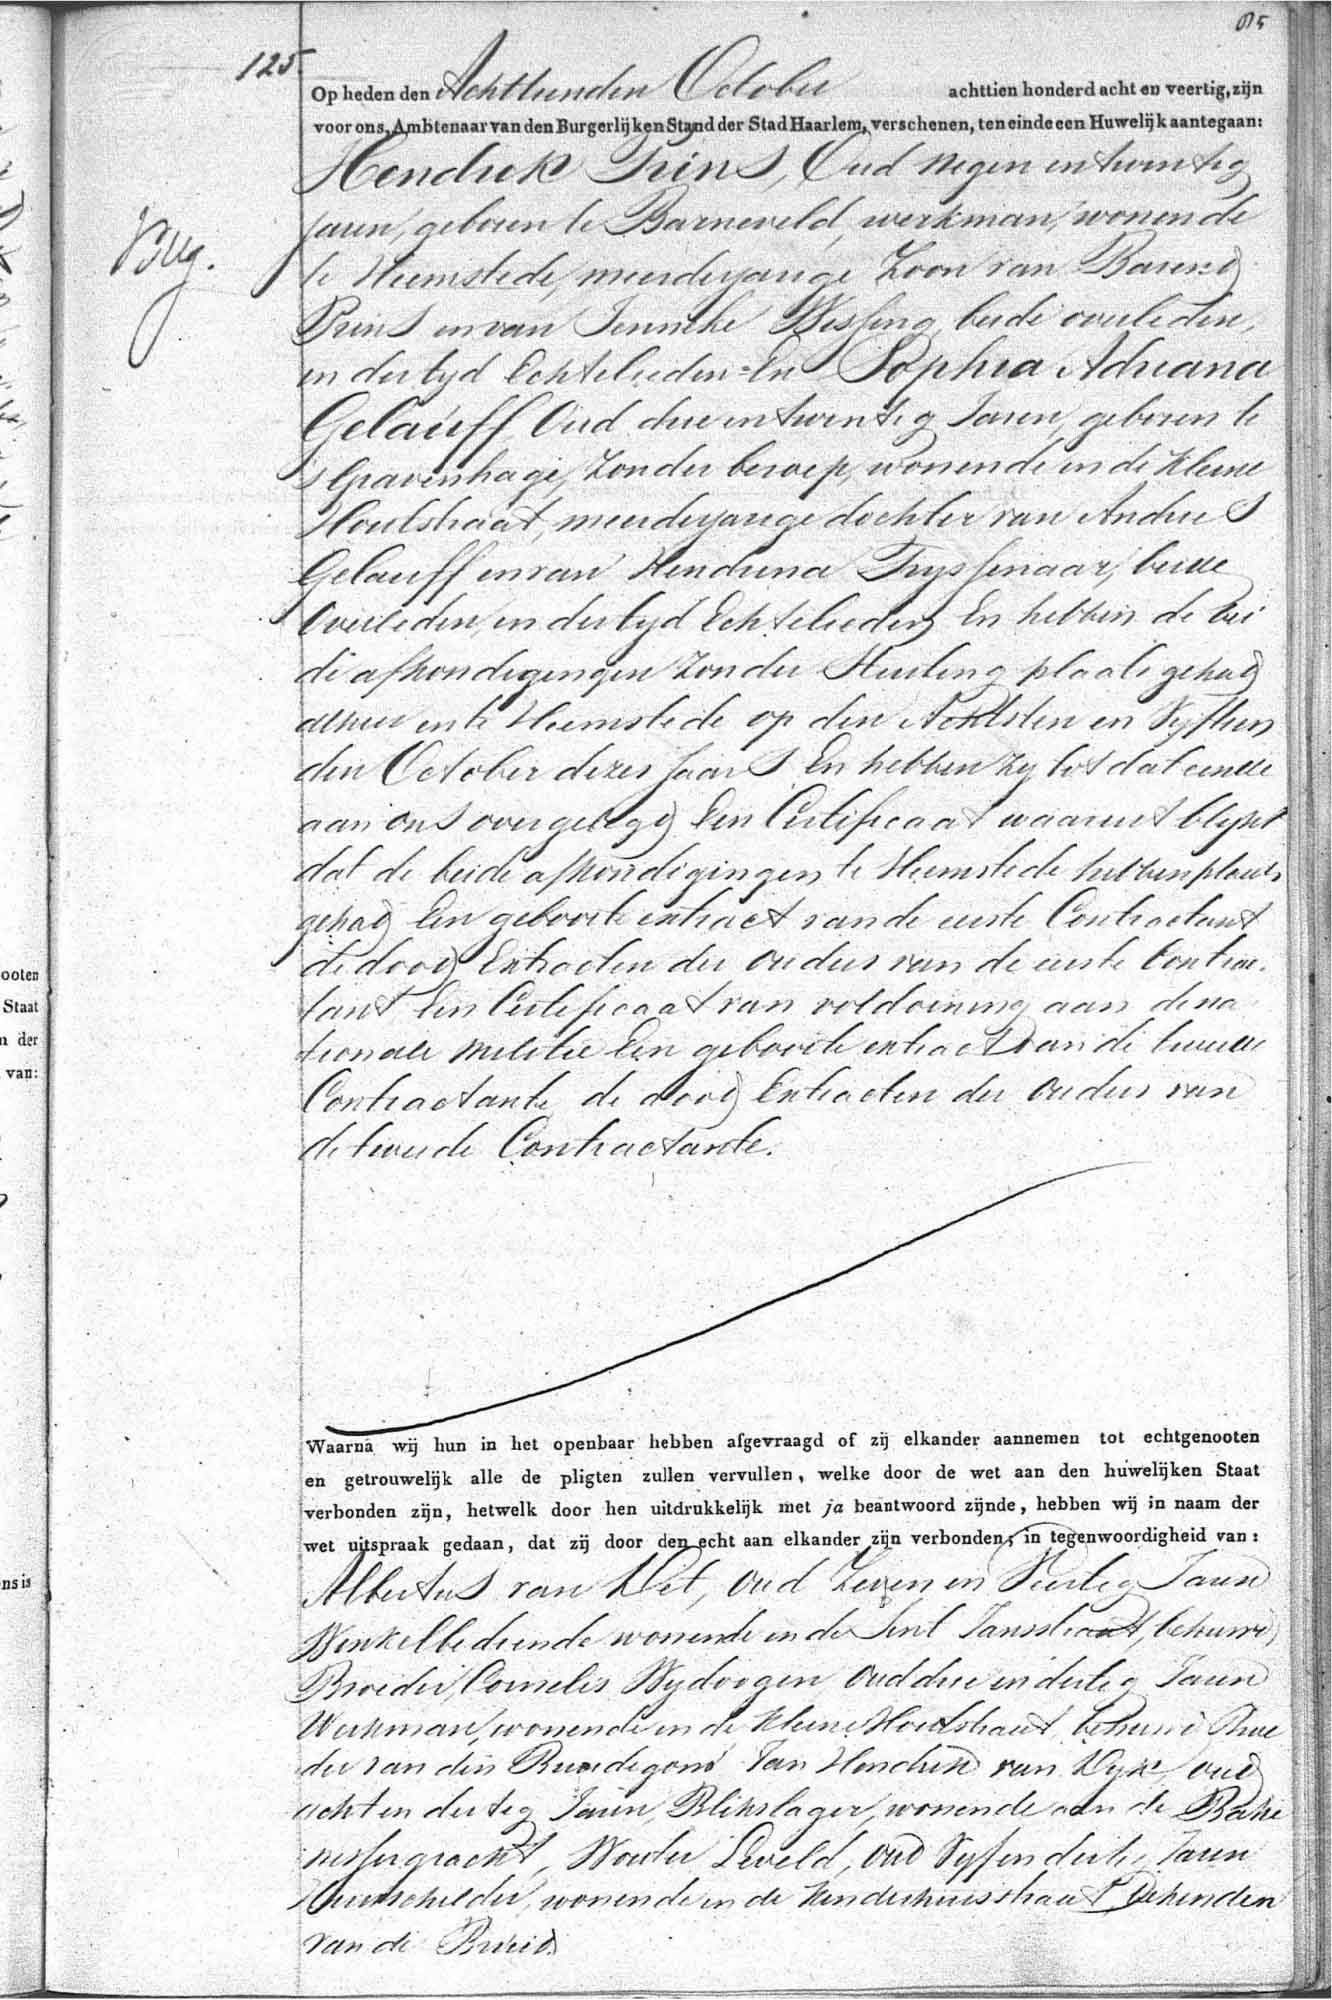 125.
Op heden den Achttienden October achttien honderd acht en veertig, zijn
voor ons, Ambtenaar van den Burgerlijken Stand der Stad Haarlem, verschenen, ten einde een Huwelijk aantegaan:
Hendrik Prins, Oud negen en twintig
Jaren, geboren te Barneveld, werkman, wonende
te Heemstede, meerderjarige Zoon van Barend
Prins en van Jenneke Wessing, beide overleden,
in der tyd Echtelieden = En Sophia Adriana
Gelauff, Oud drie en twintig Jaren, geboren te
s Gravenhage, Zonder beroep, wonende in de Kleine
Houtstraat, meerderjarige dochter van Andries
Gelauff en van Hendrina Tryssenaar, beide
Overleden, in der tyd Echtelieden En hebben de bei
de afkondigingen Zonder Stuiting plaats gehad
alhier en te Heemstede op den Achtsten en Vyftien
den October dezes Jaars En hebben Zy tot dat einde
aan ons overgelegd Een Certificaat waaruit blykt
dat de beide afkondigingen te Heemstede hebben plaats
gehad Een geboorte extract van de eerste Contractant
de dood Extracten der Ouders van de eerste Contrac-
tant Een Certificaat van voldoening aan de na
tionale Militie Een geboorte extract van de tweede
Contractante, de dood Extracten der Ouders van
de tweede Contractante.
Waarna wij hun in het openbaar hebben afgevraagd of zij elkander aannemen tot echtgenooten
en getrouwelijk alle de pligten zullen vervullen, welke door de wet aan den huwelijken Staat
verbonden zijn, hetwelk door hen uitdrukkelijk met ja beantwoord zijnde, hebben wij in naam der
wet uitspraak gedaan, dat zij door den echt aan elkander zijn verbonden; in tegenwoordigheid van:
Albertus van Vet, Oud Zeven en Veertig Jaren
Winkelbediende wonende in de Sint Jansstraat, behuwd
Broeder, Cornelis Wydoogen Oud drie en dertig Jaren
Werkman, wonende in de Kleine Houtstraat behuwd Broe
der van den Bruidegom Jan Hendrik van Dyk, oud
acht en dertig Jaren, Blikslager, wonende aan de Bake
nessergracht, Wouter Leveld, Oud Vyf en dertig Jaren
Huisschilder, wonende in de Kinderhuisstraat, Bekenden
van de Bruid.
ooten
Staat
n der
van:
ns is